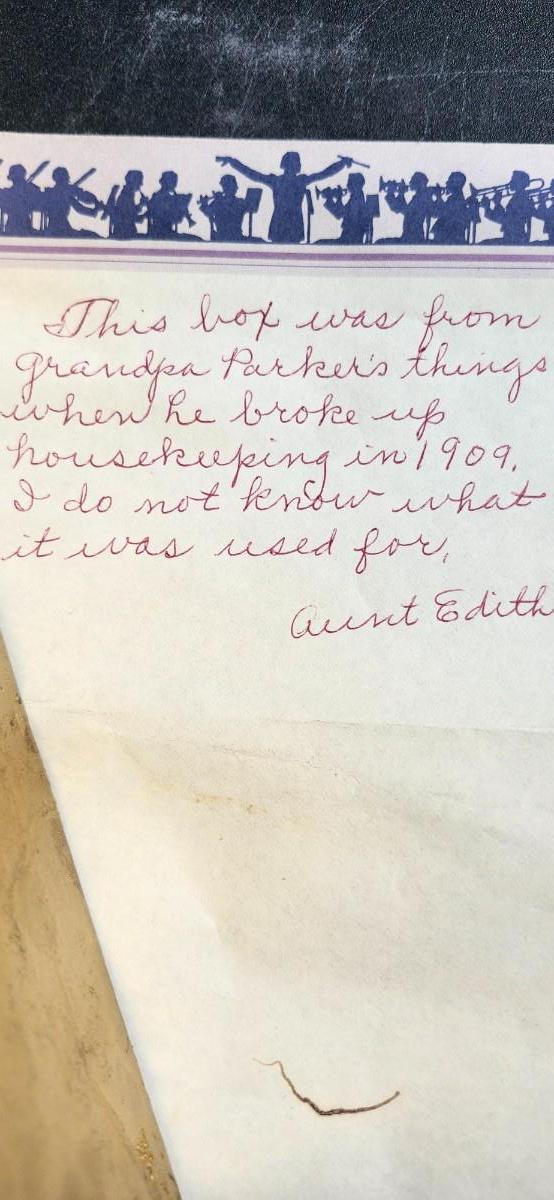 This box was from
grandpa Parker's things
when he broke up
housekeeping in 1909.
I do not know what
it was used for,
Aunt Edith